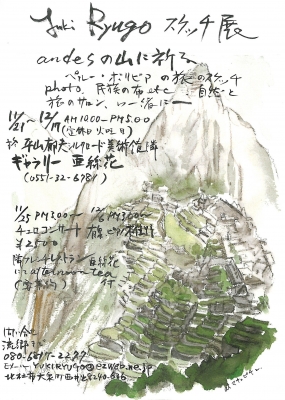 Yuki Ryugo スケッチ展
andesの山に祈る
ペルー・ボリビアの旅のスケッチ
photo、民族の布 etc 自然と
旅のサロン、い一緒に
11/21~12/7 AM10:00~PM5:00
(定休日 火曜日)
於 平山郁夫シルクロード美術館隣
ギャラリー 亜絲花
(0551-32-6781)
11/25 PM3:00~ 12/6 PM3:00~
チェロコンサート
¥2500
隣フレンチレストラン 亜絲花
にてafternoon tea
付
(要予約)
問い合せ
流郷
Eメール YUKIRYUGO@ezweb.ne.jp
北杜市大泉町西井出8240-